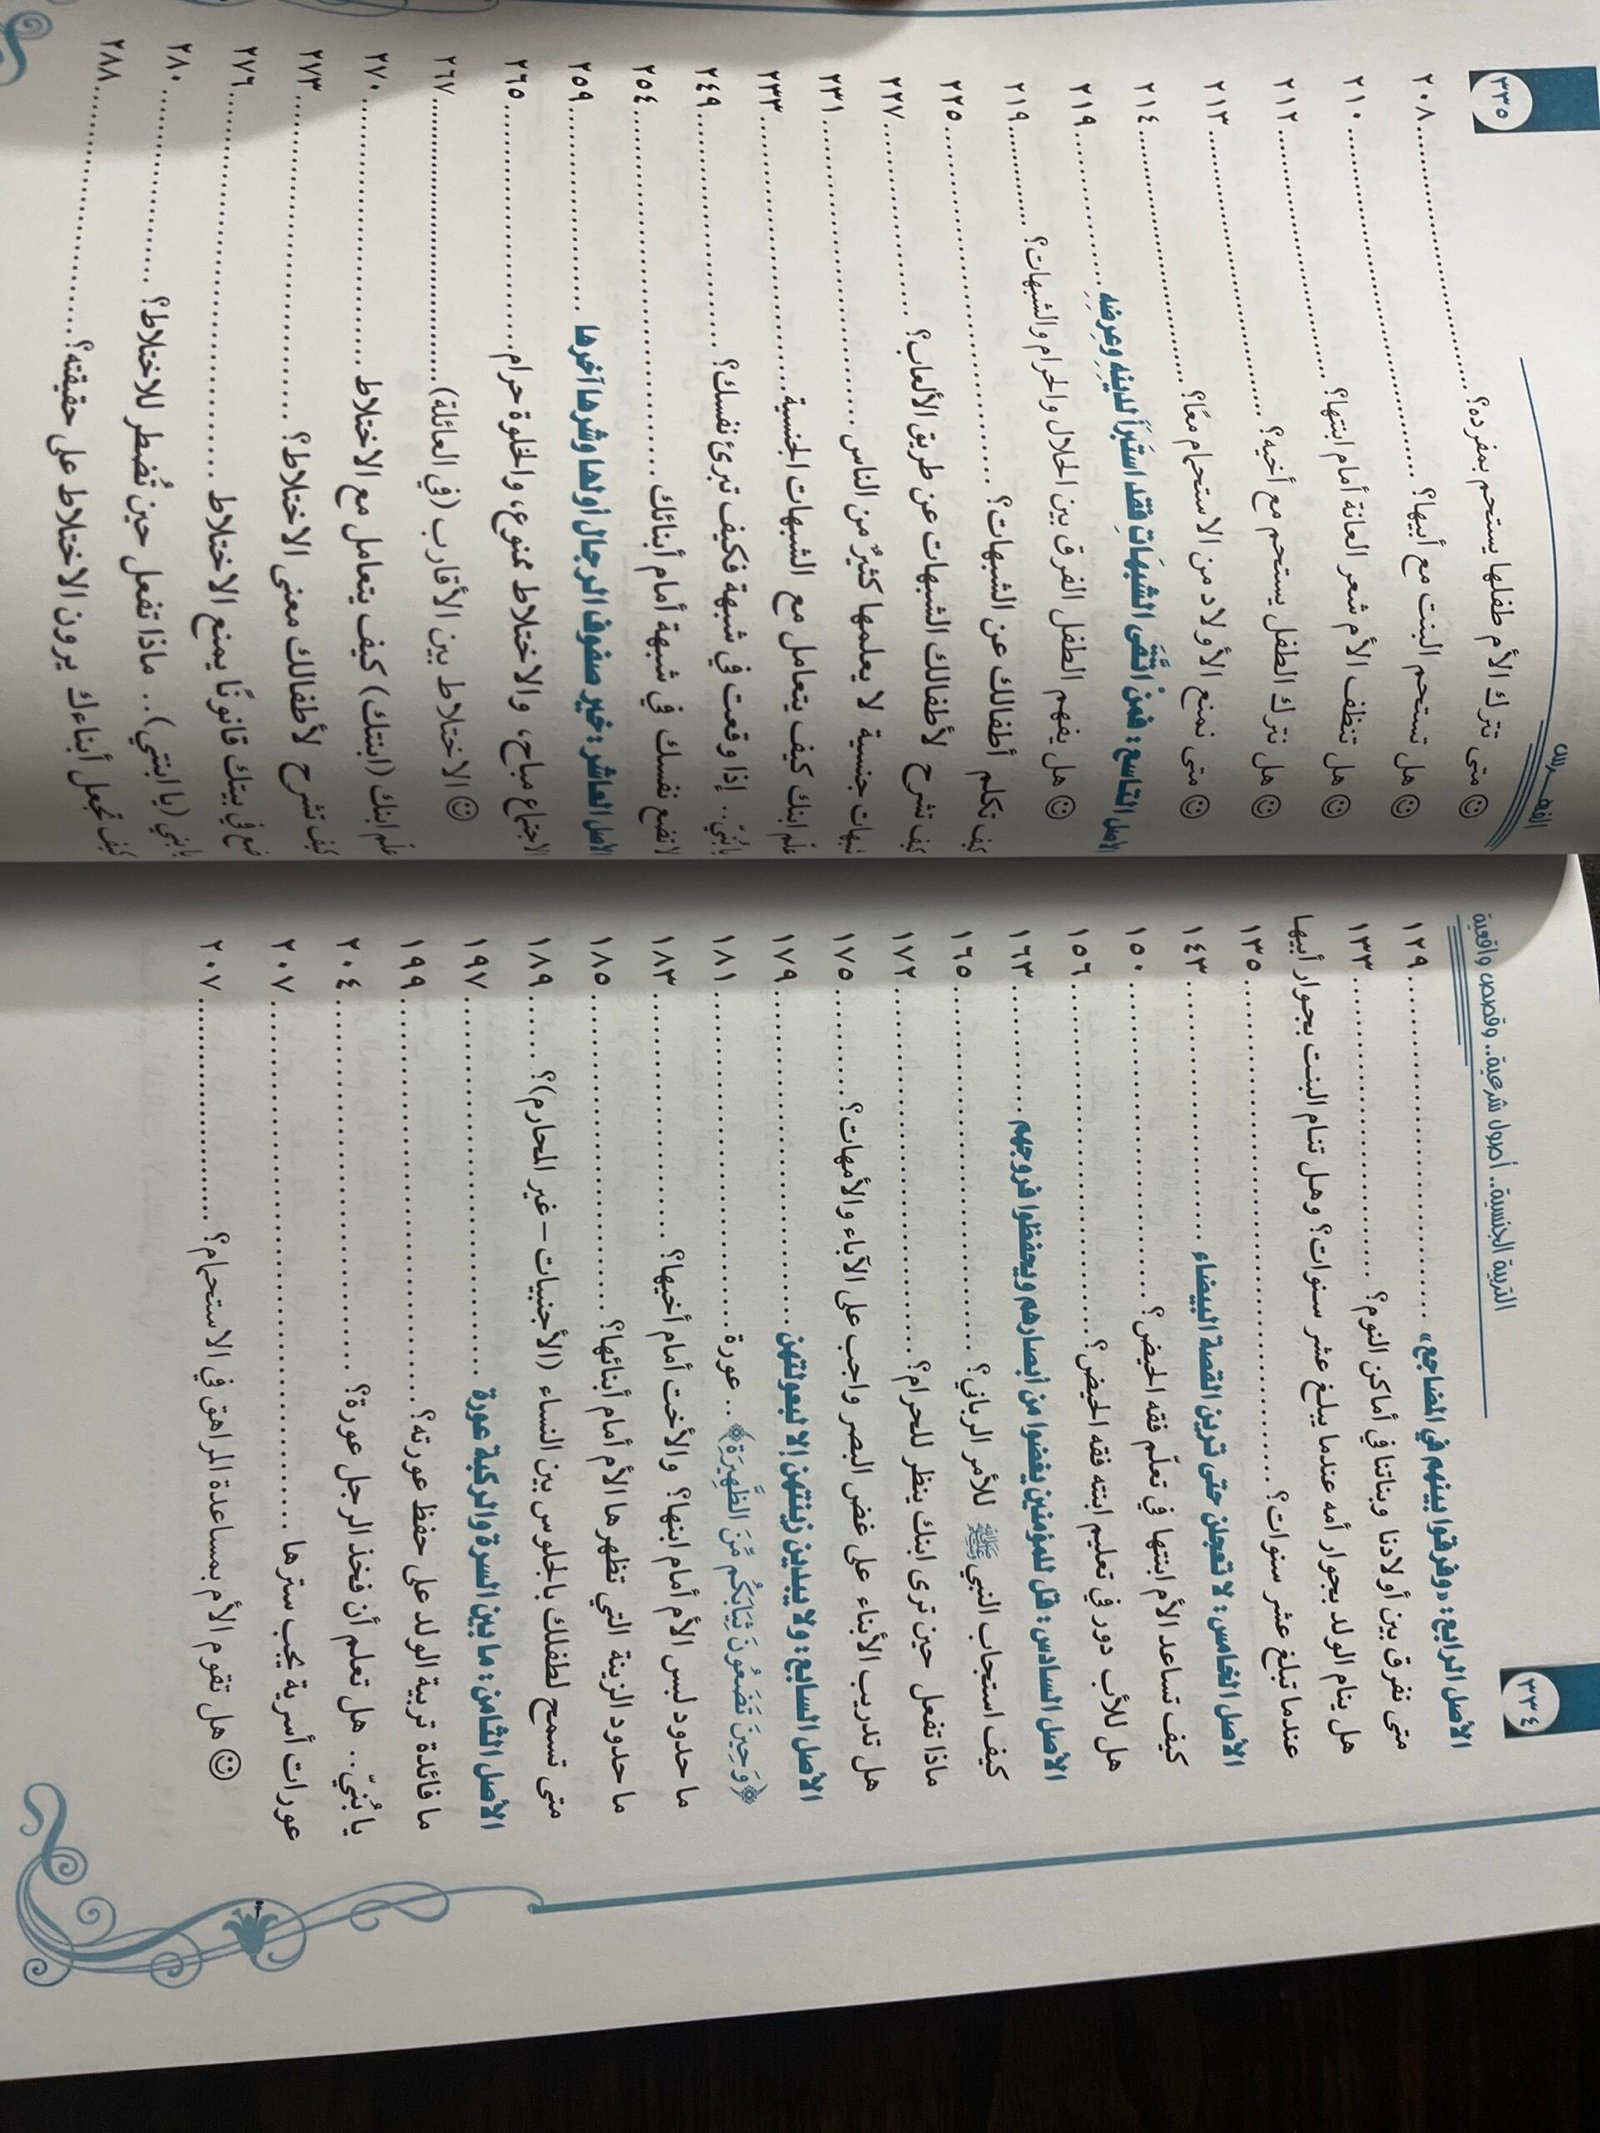 ٣٣٤
التربية الجنسية.. أصول شرعية.. وقصص واقعية
الأصل الرابع: «وفرقوا بينهم في المضاجع» ........ ١٢٩
متى نفرق بين أولادنا وبناتنا في أماكن النوم؟ ........ ١٣٣
هل ينام الولد بجوار أمه عندما يبلغ عشر سنوات؟ وهل تنام البنت بجوار أبيها
عندما تبلغ عشر سنوات؟ ........ ١٣٥
الأصل الخامس: لا تعجلن حتى ترين القصة البيضاء ........ ١٤٣
كيف تساعد الأم ابنتها في تعلّم فقه الحيض؟ ........ ١٥٠
هل للأب دور في تعليم ابنته فقه الحيض؟ ........ ١٥٦
الأصل السادس: قل للمؤمنين يغضوا من أبصارهم ويحفظوا فروجهم ........ ١٦٣
كيف استجاب النبي ﷺ للأمر الرباني؟ ........ ١٦٥
ماذا تفعل حين ترى ابنك ينظر للحرام؟ ........ ١٧٢
هل تدريب الأبناء على غض البصر واجب على الآباء والأمهات؟ ........ ١٧٥
الأصل السابع: ولا يبدين زينتهن إلا لبعولتهن ........ ١٧٩
﴿وَحِينَ تَضَعُونَ ثِيَابَكُم مِّنَ الظَّهِيرَةِ﴾ .. عورة ........ ١٨١
ما حدود لبس الأم أمام ابنها؟ والأخت أمام أخيها؟ ........ ١٨٣
ما حدود الزينة التي تظهرها الأم أمام أبنائها؟ ........ ١٨٥
متى تسمح لطفلك بالجلوس بين النساء (الأجنبيات – غير المحارم)؟ ........ ١٨٩
الأصل الثامن: ما بين السرة والركبة عورة ........ ١٩٧
ما فائدة تربية الولد على حفظ عورته؟ ........ ١٩٩
يا بُنيّ.. هل تعلم أن فخذ الرجل عورة؟ ........ ٢٠٤
عورات أسرية يجب سترها ........ ٢٠٧
☺ هل تقوم الأم بمساعدة المراهق في الاستحمام؟ ........ ٢٠٧
الفهــرس
٣٣٥
☺ متى تترك الأم طفلها يستحم بمفرده؟ ........ ٢٠٨
☺ هل تستحم البنت مع أبيها؟ ........ ٢١٠
☺ هل تنظف الأم شعر العانة أمام ابنتها؟ ........ ٢١٢
☺ هل نترك الطفل يستحم مع أخيه؟ ........ ٢١٣
☺ متى نمنع الأولاد من الاستحمام معًا؟ ........ ٢١٤
الأصل التاسع: فَمَنْ اتَّقَى الشبهَاتِ فقد استَبَرَأَ لدينِهِ وعِرضِهِ ........ ٢١٩
☺ هل يفهم الطفل الفرق بين الحلال والحرام والشبهات؟ ........ ٢١٩
كيف تكلم أطفالك عن الشبهات؟ ........ ٢٢٥
كيف تشرح لأطفالك الشبهات عن طريق الألعاب؟ ........ ٢٢٧
شبهات جنسية لا يعلمها كثيرٌ من الناس ........ ٢٣١
علّم ابنك كيف يتعامل مع الشبهات الجنسية ........ ٢٣٣
يا بُنيّ.. إذا وقعت في شبهة فكيف تبرئ نفسك؟ ........ ٢٤٩
لا تضع نفسك في شبهة أمام أبنائك ........ ٢٥٤
الأصل العاشر: خير صفوف الرجال أولها وشرها آخرها ........ ٢٥٩
الاجتماع مباح، والاختلاط ممنوع، والخلوة حرام ........ ٢٦٥
☺ الاختلاط بين الأقارب (في العائلة) ........ ٢٦٧
علّم ابنك (ابنتك) كيف يتعامل مع الاختلاط ........ ٢٧٠
كيف تشرح لأطفالك معنى الاختلاط؟ ........ ٢٧٣
ضع في بيتك قانونًا يمنع الاختلاط ........ ٢٧٦
يا بني (يا ابنتي).. ماذا تفعل حين تُضطر للاختلاط؟ ........ ٢٨٠
كيف تجعل أبناءك يرون الاختلاط على حقيقته؟ ........ ٢٨٨